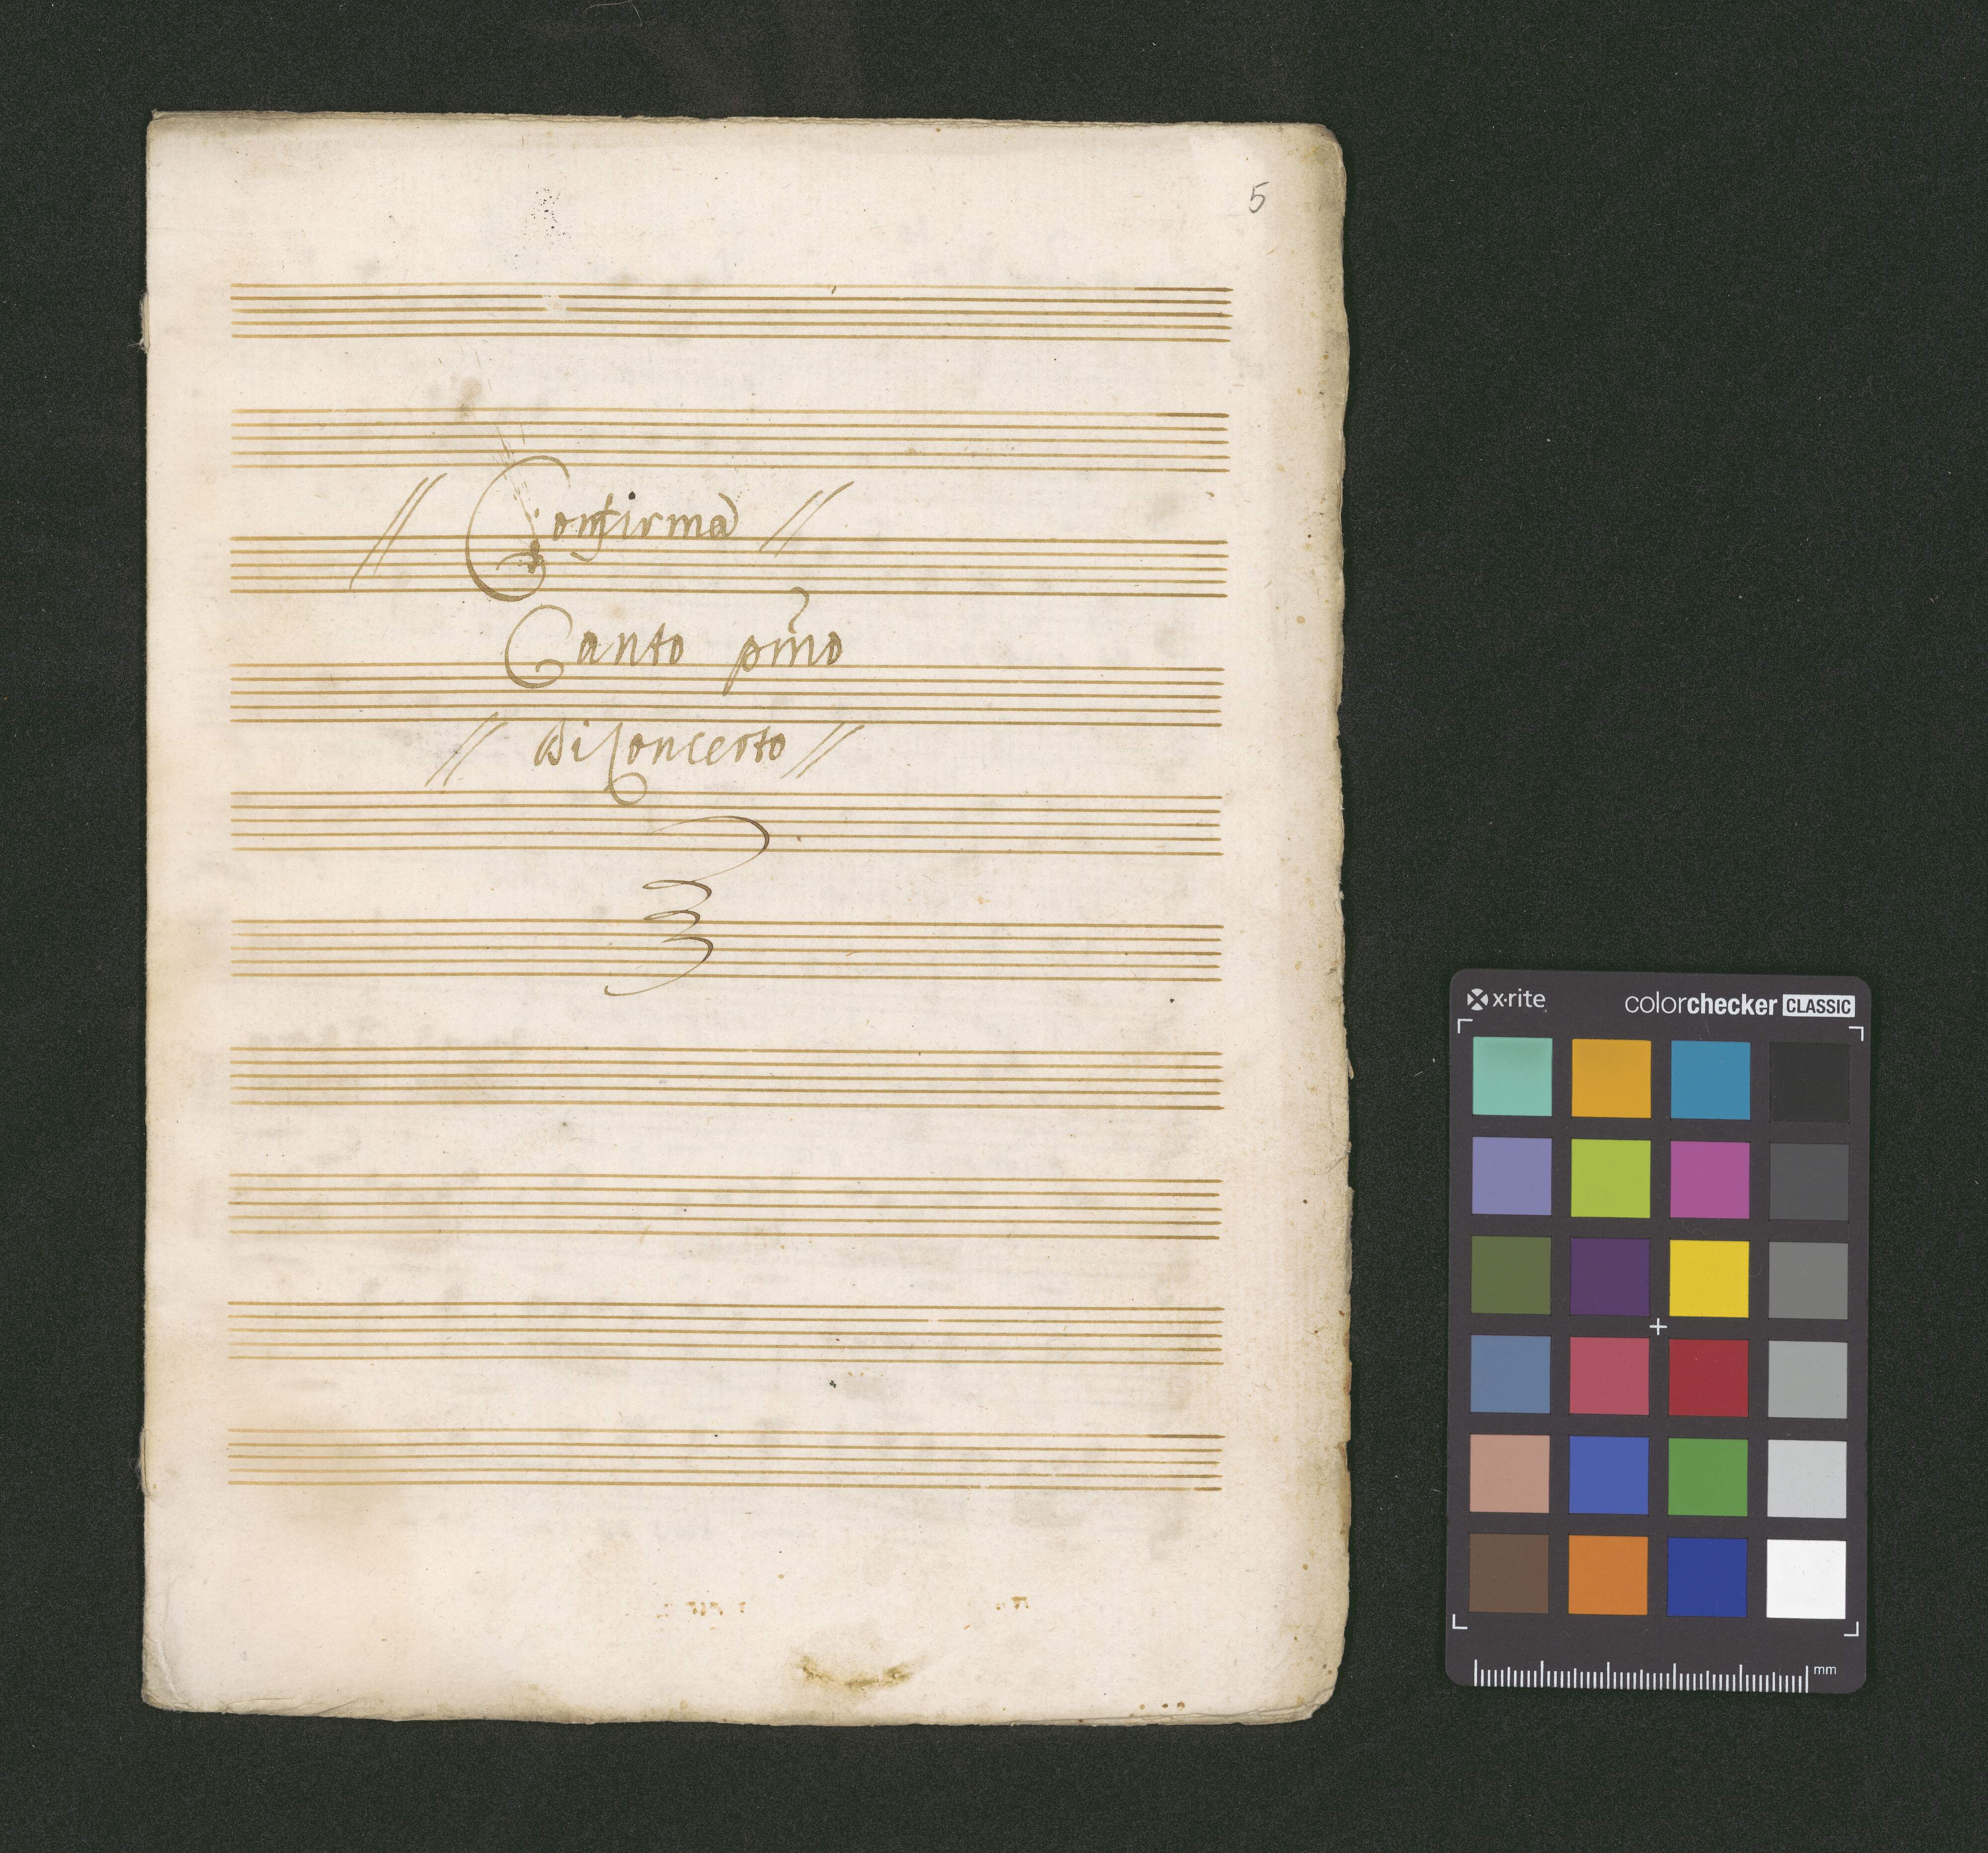 5
// Confirma //
Canto pm̃o
// Di Concerto //
x·rite
colorchecker CLASSIC
mm